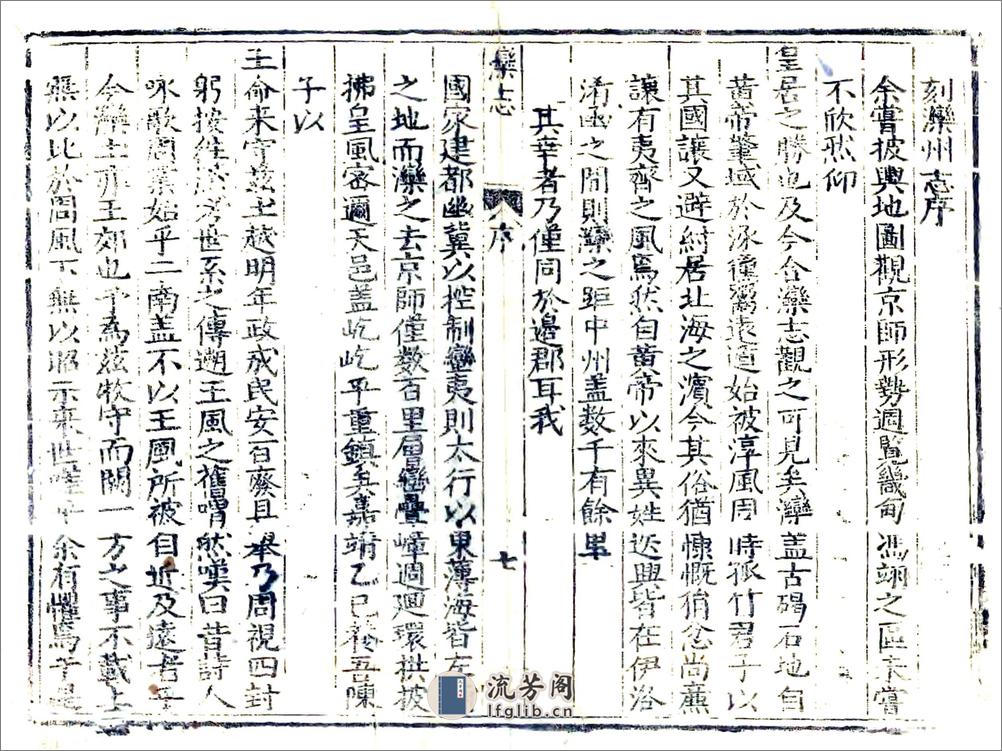 刻灤州志序
余嘗披輿地圖觀京師形勢週覧畿甸馮翊之區未嘗
不欣然仰
皇居之勝也及今合灤志觀之可見矣灤盖古碣石地自
黄帝肇域於涿獐鸑遠道始被淳風周時孤竹君子以
其國讓又避紂居北海之濵今其俗猶慷慨狷忿尚廉
讓有夷齊之風焉然自黄帝以來異姓迭興皆在伊洛
淆函之間則灤之距中州盖數千有餘里
其幸者乃僅同於邊郡耳我
灤志
序
七
國家建都幽冀以控制蠻夷則太行以東薄海皆左
之地而灤之去京師僅數百里層巒疊嶂週廻環拱披
拂皇風密邇天邑盖屹屹乎重鎮矣嘉靖乙巳吾陳
子以
王命来守兹土越明年政成民安百廢具舉乃周視四封
躬按往考世系之傳遡王風之舊喟然嘆曰昔詩人
咏歌周業始乎二南盖不以王風所被自近及遠者乎
今灤土亦王郊也予為兹牧守而闕一方之事不載上
無以比於周風下無以昭示来世唯余有懼焉于是
流芳阁
lfglib.cn